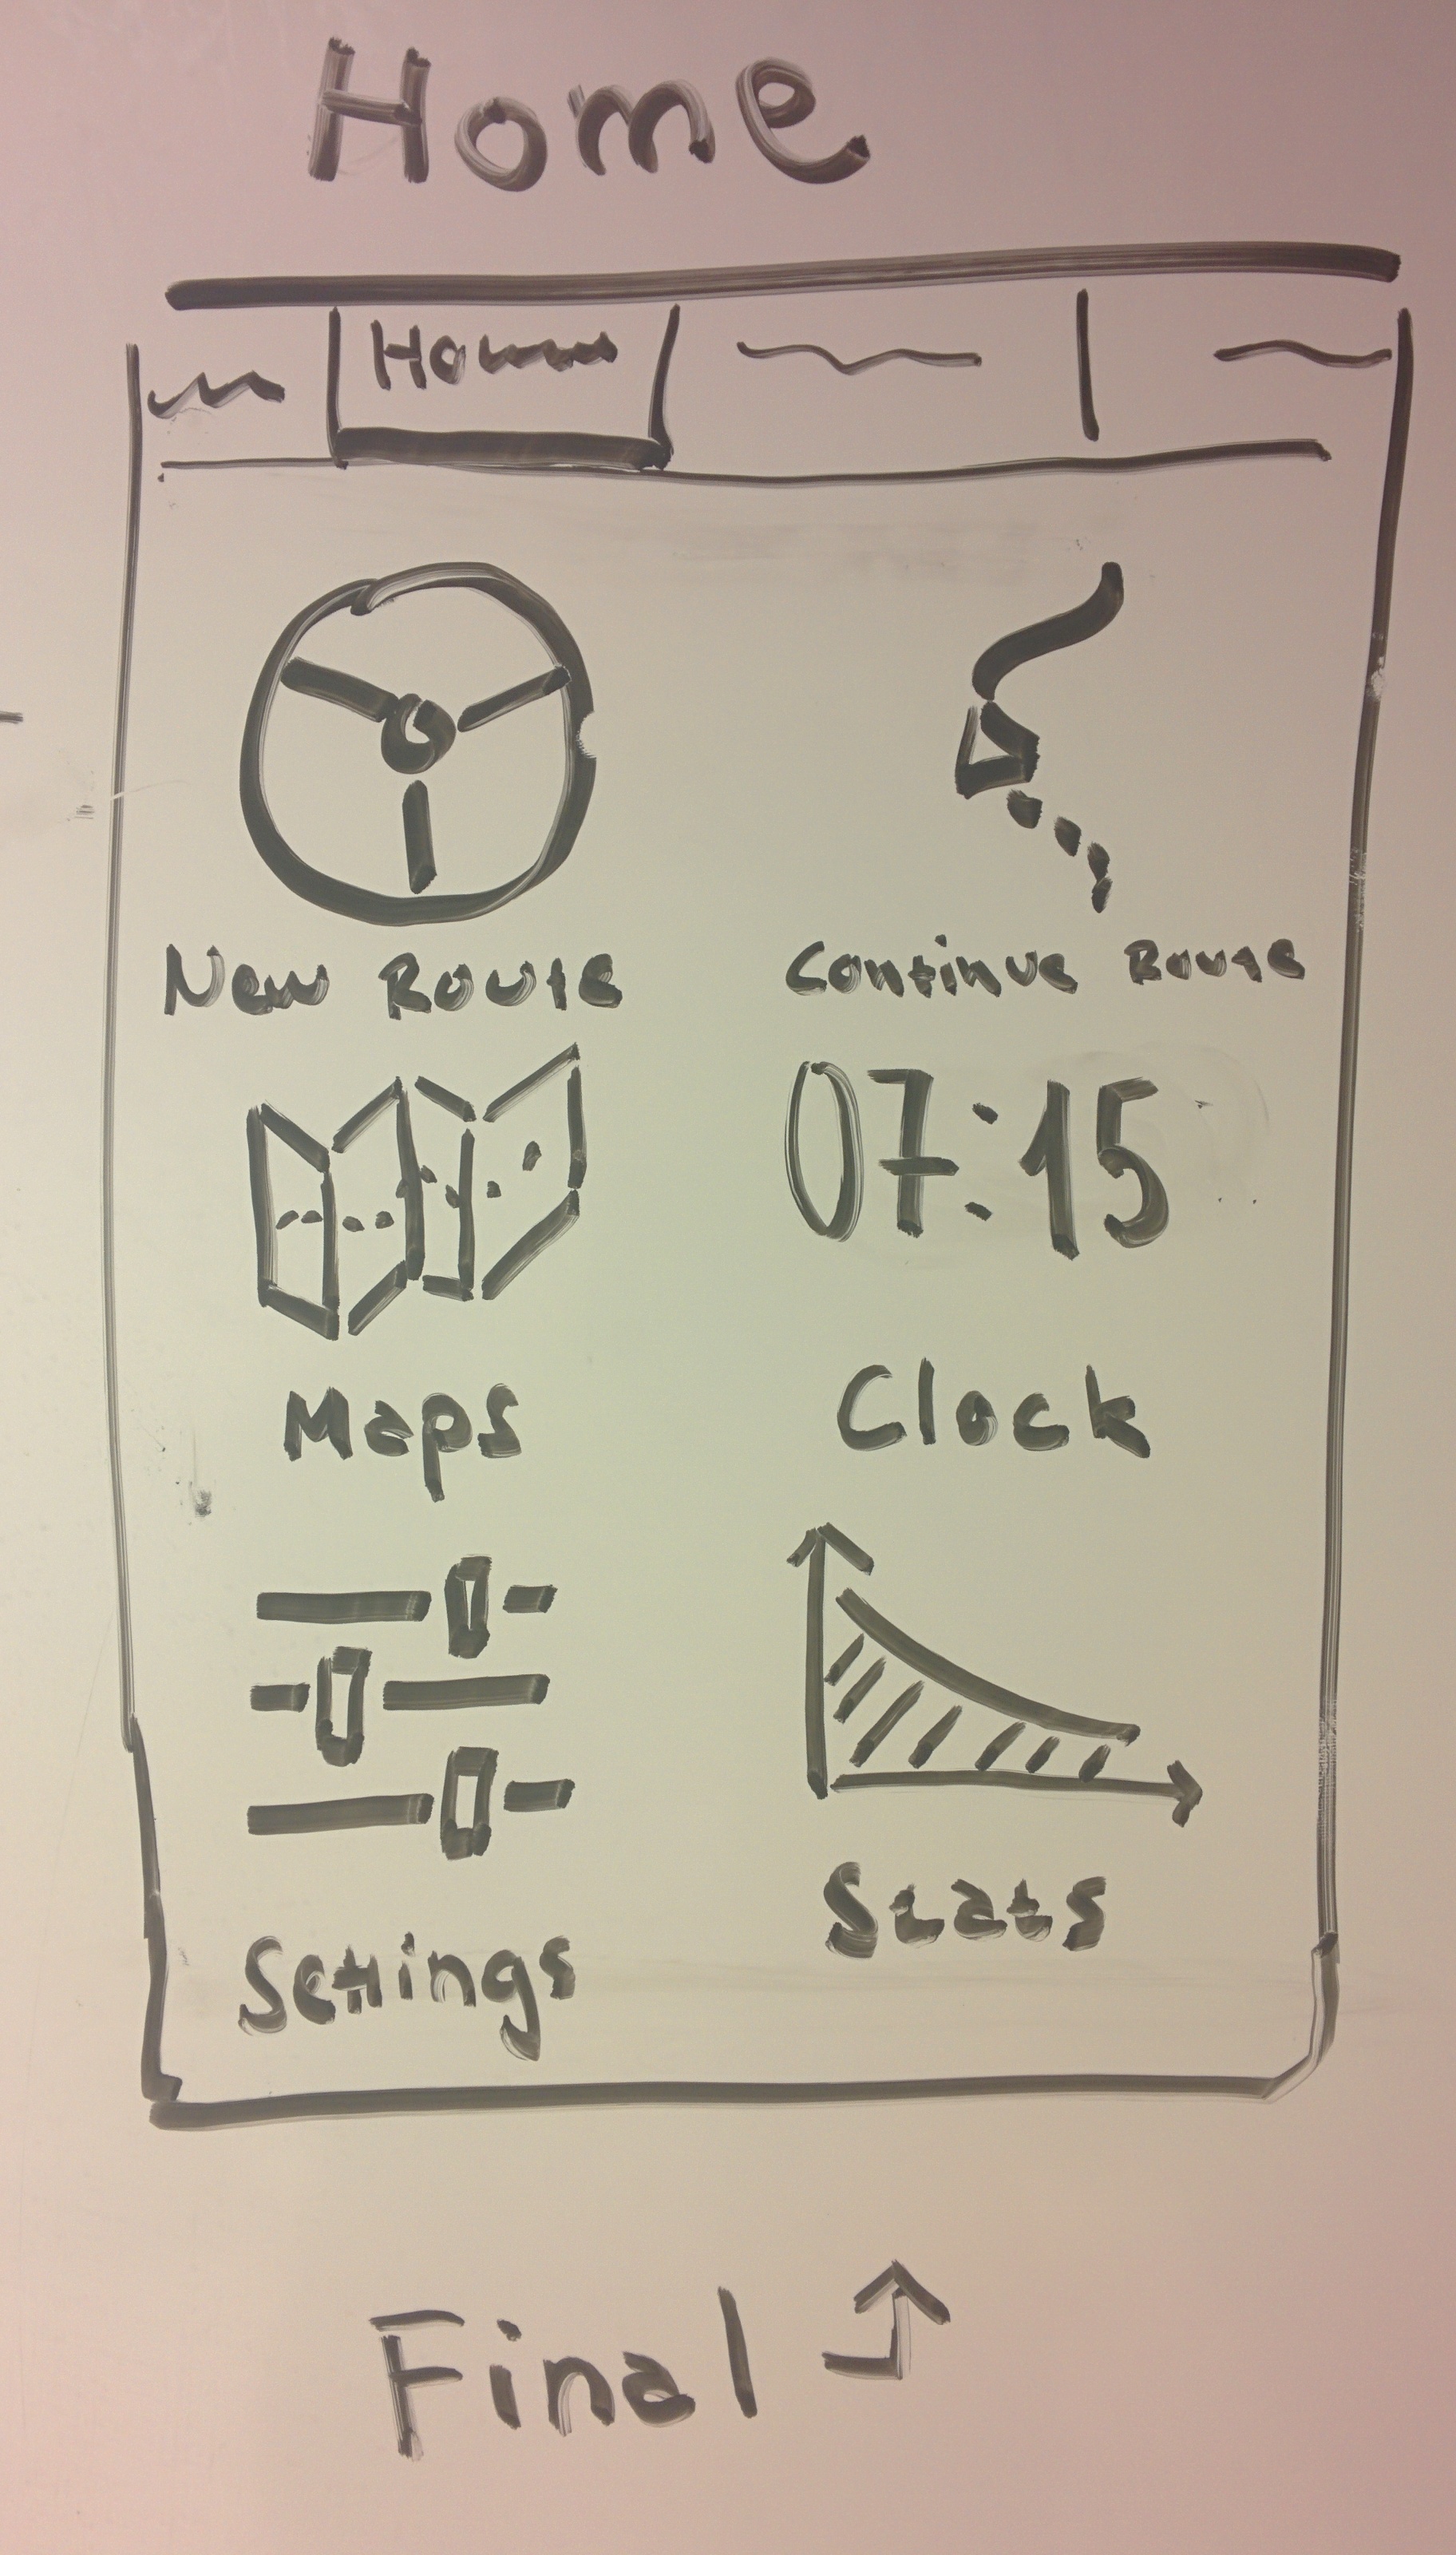 Home
Home
New Route
Continue Route
07:15
Maps
Clock
Settings
Stats
Final